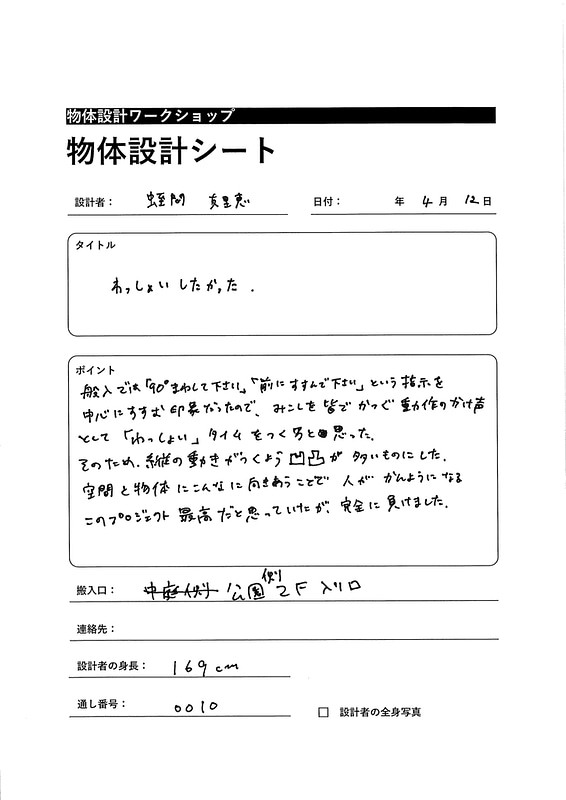 物体設計ワークショップ
物体設計シート
設計者： 蛭間 真里恵
日付： 年 4月 12日
タイトル
わっしょいしたかった.
ポイント
般入では「90°まわして下さい」「前にすすんで下さい」という指示を
中心にすすむ印象だったので、みこしを皆でかつぐ動作のかけ声
として「わっしょい」タイムをつくろと思った.
そのため、縦の動きがつくよう凹凸が多いものにした.
空間と物体にこんなに向きあうことで人がかんようになる
このプロジェクト最高だと思っていたが、完全に負けました.
搬入口： 中庭側 公園側2F入り口
連絡先：
設計者の身長： 169cm
通し番号： 0010
□ 設計者の全身写真